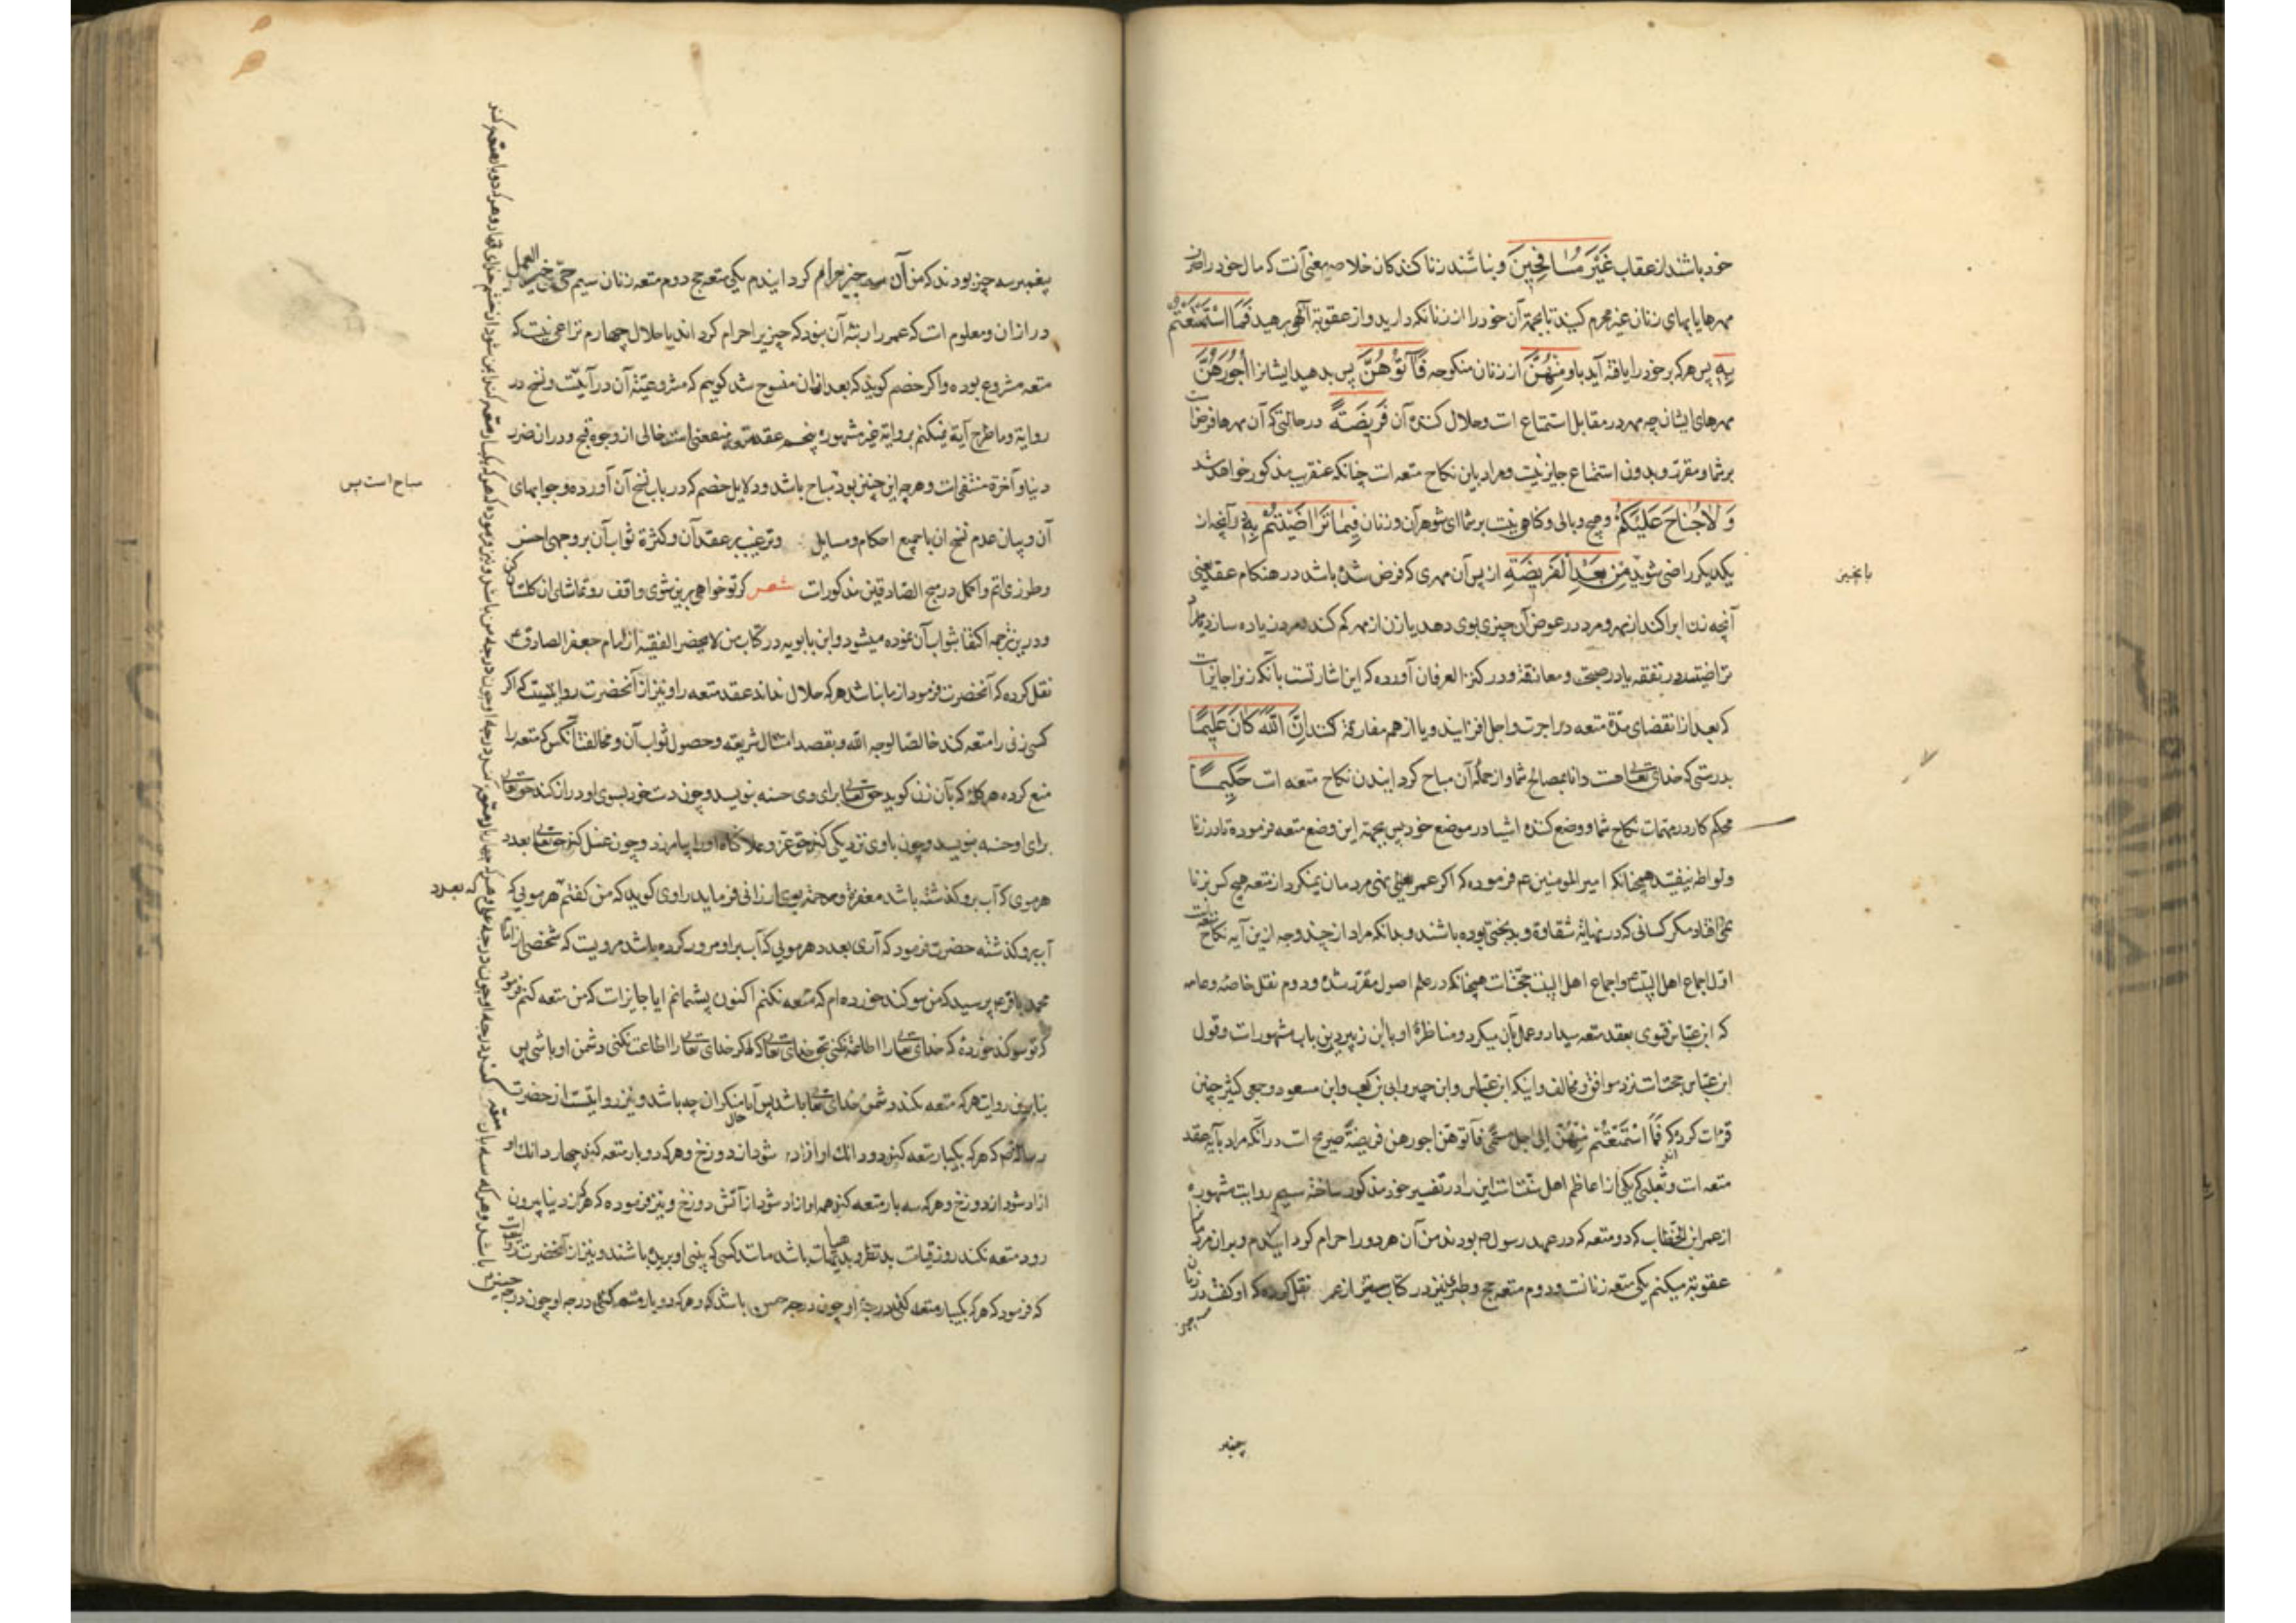 خود باشند از عقاب غَيْرَ مُسَافِحِينَ و نباشند زنا کنندکان خلاصه معنی آنست که مال خود را صرف
مهرها یا بهای زنان غیر محرم کنید تا بجهة آن خود را از زنا نکه دارید و از عقوبة آلهی برهید فَمَا اسْتَمْتَعْتُمْ
بِهِ پس هر که برخورد را یافته آید باو مِنْهُنَّ از زنان منکوحه فَآتُوهُنَّ پس بدهید ایشانرا أُجُورَهُنَّ
مهرهای ایشان چه مهر در مقابل استمتاع است و حلال کننده آن فَرِيضَةً در حالتی که آن مهرها فرض است
بر شما و مقرر و بدون استمتاع جایز نیست و مراد باین نکاح متعه است چنانکه عنقریب مذکور خواهد شد
وَلَا جُنَاحَ عَلَيْكُمْ و هیچ وبالی و کناهی نیست بر شما ای شوهران و زنان فِيمَا تَرَاضَيْتُمْ بِهِ در آنچه از
یکدیکر راضی شوید مِنْ بَعْدِ الْفَرِيضَةِ از پس آن مهری که فرض شده باشد در هنکام عقد یعنی
آنچه زن ابرا کند از مهر و مرد در عوض آن چیزی بوی دهد یا زن از مهر کم کند و مرد زیاده سازد یا
تراضیتم در نفقه یا در صحبت و معانقة و در کنز العرفان آورده که این اشارتست بآنکه نیز جایز است
که بعد از انقضای مدة متعه در اجرت و اجل افزایند و یا از هم مفارقة کنند إِنَّ اللَّهَ كَانَ عَلِيمًا
بدرستی که خدای تعالی هست دانا بمصالح شما و از جمله آن مباح کردانیدن نکاح متعه است حَكِيمًا
محکم کار در مهمات نکاح شما و وضع کننده اشیا در موضع خود پس بجهة این وضع متعه فرموده تا در زنا
و لواطه نیفتید همچنانکه امیر المومنین عم فرموده که اکر عمر یعنی نهی مردمان نمیکرد از متعه هیچ کس بزنا
نمی افتاد مکر کسانی که در نهایة شقاوة و بدبختی بوده باشند و بدانکه مراد از چند وجه ازین آیه نکاح متعه است
اول اجماع اهل البیت و اجماع اهل البیت حجت است همچنانکه در علم اصول مقرر شده و دوم نقل خاصه و عامه
که ابن عباس فتوی بعقد متعه میداد و عمل بآن میکرد و مناظرۀ او با ابن زبیر درین باب مشهور است و قول
ابن عباس حجت است نزد موافق و مخالف و اینکه ابن عباس و ابن جبیر و ابی بن کعب و ابن مسعود و جمعی کثیر چنین
قرئت کرده اند که فَمَا اسْتَمْتَعْتُمْ مِنْهُنَّ الی اجل مسمی فآتوهن اجورهن فریضة صریح است در آنکه مراد بآیه عقد
متعه است و ثعلبی که یکی از اعاظم اهل سنت است این را در تفسیر خود مذکور ساخته سیم روایت مشهوره
از عمر ابن الخطاب که دو متعه که در عهد رسول ص بودند من آن هر دو را حرام کردانیدم و بر آن مردم را
عقوبة میکنم یکی متعه زنانست و دوم متعه حج و طبری نیز در کتاب مستبین از عمر نقل کرده که او کفت در زمان
سه چیز
بانچیز
پیغمبر سه چیز بودند که من آن سه چیز را حرام کردانیدم یکی متعه حج دوم متعه زنان سیم حی علی خیر العمل
در اذان و معلوم است که عمر را رتبه آن نبود که چیزیرا حرام کرداند یا حلال چهارم نزاعی نیست که
متعه مشروع بوده و اکر خصم کوید که بعد ازان منسوخ شد کوییم که مشروعیة آن در آیتست و نسخ در
روایة و ما طرح آیة نمیکنم بروایة غیر مشهوره پنجم عقد متعه منفعتی است خالی از وجوه قبح و در آن ضرر
دنیا و آخرة منتفی است و هر چه این چنین بود مباح باشد و دلایل خصم که در باب نسخ آن آورده و جوابهای
مباح است پس
آن و بیان عدم نسخ آن با جمیع احکام و مسایل و ترغیب بر عقد آن و کثرة ثواب آن بر وجهی احسن
و طرزی اتم و اکمل در منهج الصادقین مذکور است شعر کر تو خواهی برین شوی واقف رو تماشای آن کلستان
و درین ترجمه اکتفا بثواب آن نموده میشود و ابن بابویه در کتاب من لا یحضر الفقیه از امام جعفر الصادق ع
نقل کرده که آنحضرت فرمود از ما نباشد هر که حلال نداند عقد متعه را و نیز از آنحضرت روایتست که اکر
کسی زنی را متعه کند خالصا لوجه الله و بقصد امتثال شریعه و حصول ثواب آن و مخالفت آنکس که متعه را
منع کرده هر کلمه که بآن زن کوید حق تعالی برای وی حسنه بنویسد و چون دست خود بسوی او دراز کند حق تعالی
برای او حسنه بنویسد و چون باوی نزدیکی کند حق عز و علا کناه او را بیامرزد و چون غسل کند حق تعالی بعدد
هر موی که آب برو کذشته باشد مغفرة و رحمة بوی ارزانی فرماید راوی کوید که من کفتم هر مویی که
که بعدد
آب برو کذشته حضرت فرمود که آری بعدد هر مویی که آب بر او مرور کرده باشد مرویست که شخصی از امام
محمد باقر ع پرسید که من سوکند خورده ام که متعه نکنم اکنون پشیمانم آیا جایز است که من متعه کنم فرمود
که تو سوکند خورده که خدای تعالی را اطاعة نکنی بحق خدای تعالی که اکر خدای تعالی را اطاعت نکنی دشمن او باشی پس
بنابرین روایت هر که متعه نکند دشمن خدای تعالی باشد پس آیا حال منکران چه باشد و نیز روایتست از حضرت
رسالة ص که هر که یکبار متعه کند دو دانك او آزاد شود از دوزخ و هر که دو بار متعه کند چهار دانك او
ازاد شود از دوزخ و هر که سه بار متعه کند همه او ازاد شود از آتش دوزخ و نیز فرموده که هر که از دنیا بیرون
رود متعه نکند روز قیامت بد منظر و بد هیات باشد مانند کسی که بینی او بریده باشند و نیز از آنحضرت روایتست
که فرمود که هر که یکبار متعه کند درجۀ او چون درجه حسین باشد و هر که دو بار متعه کند درجه او چون درجه حسن
باشد و هر که سه بار متعه کند درجه او چون درجه علی و هر که چهار بار متعه کند درجه او چون درجه من باشد و نیز فرموده که هر که یکبار متعه کند
چند